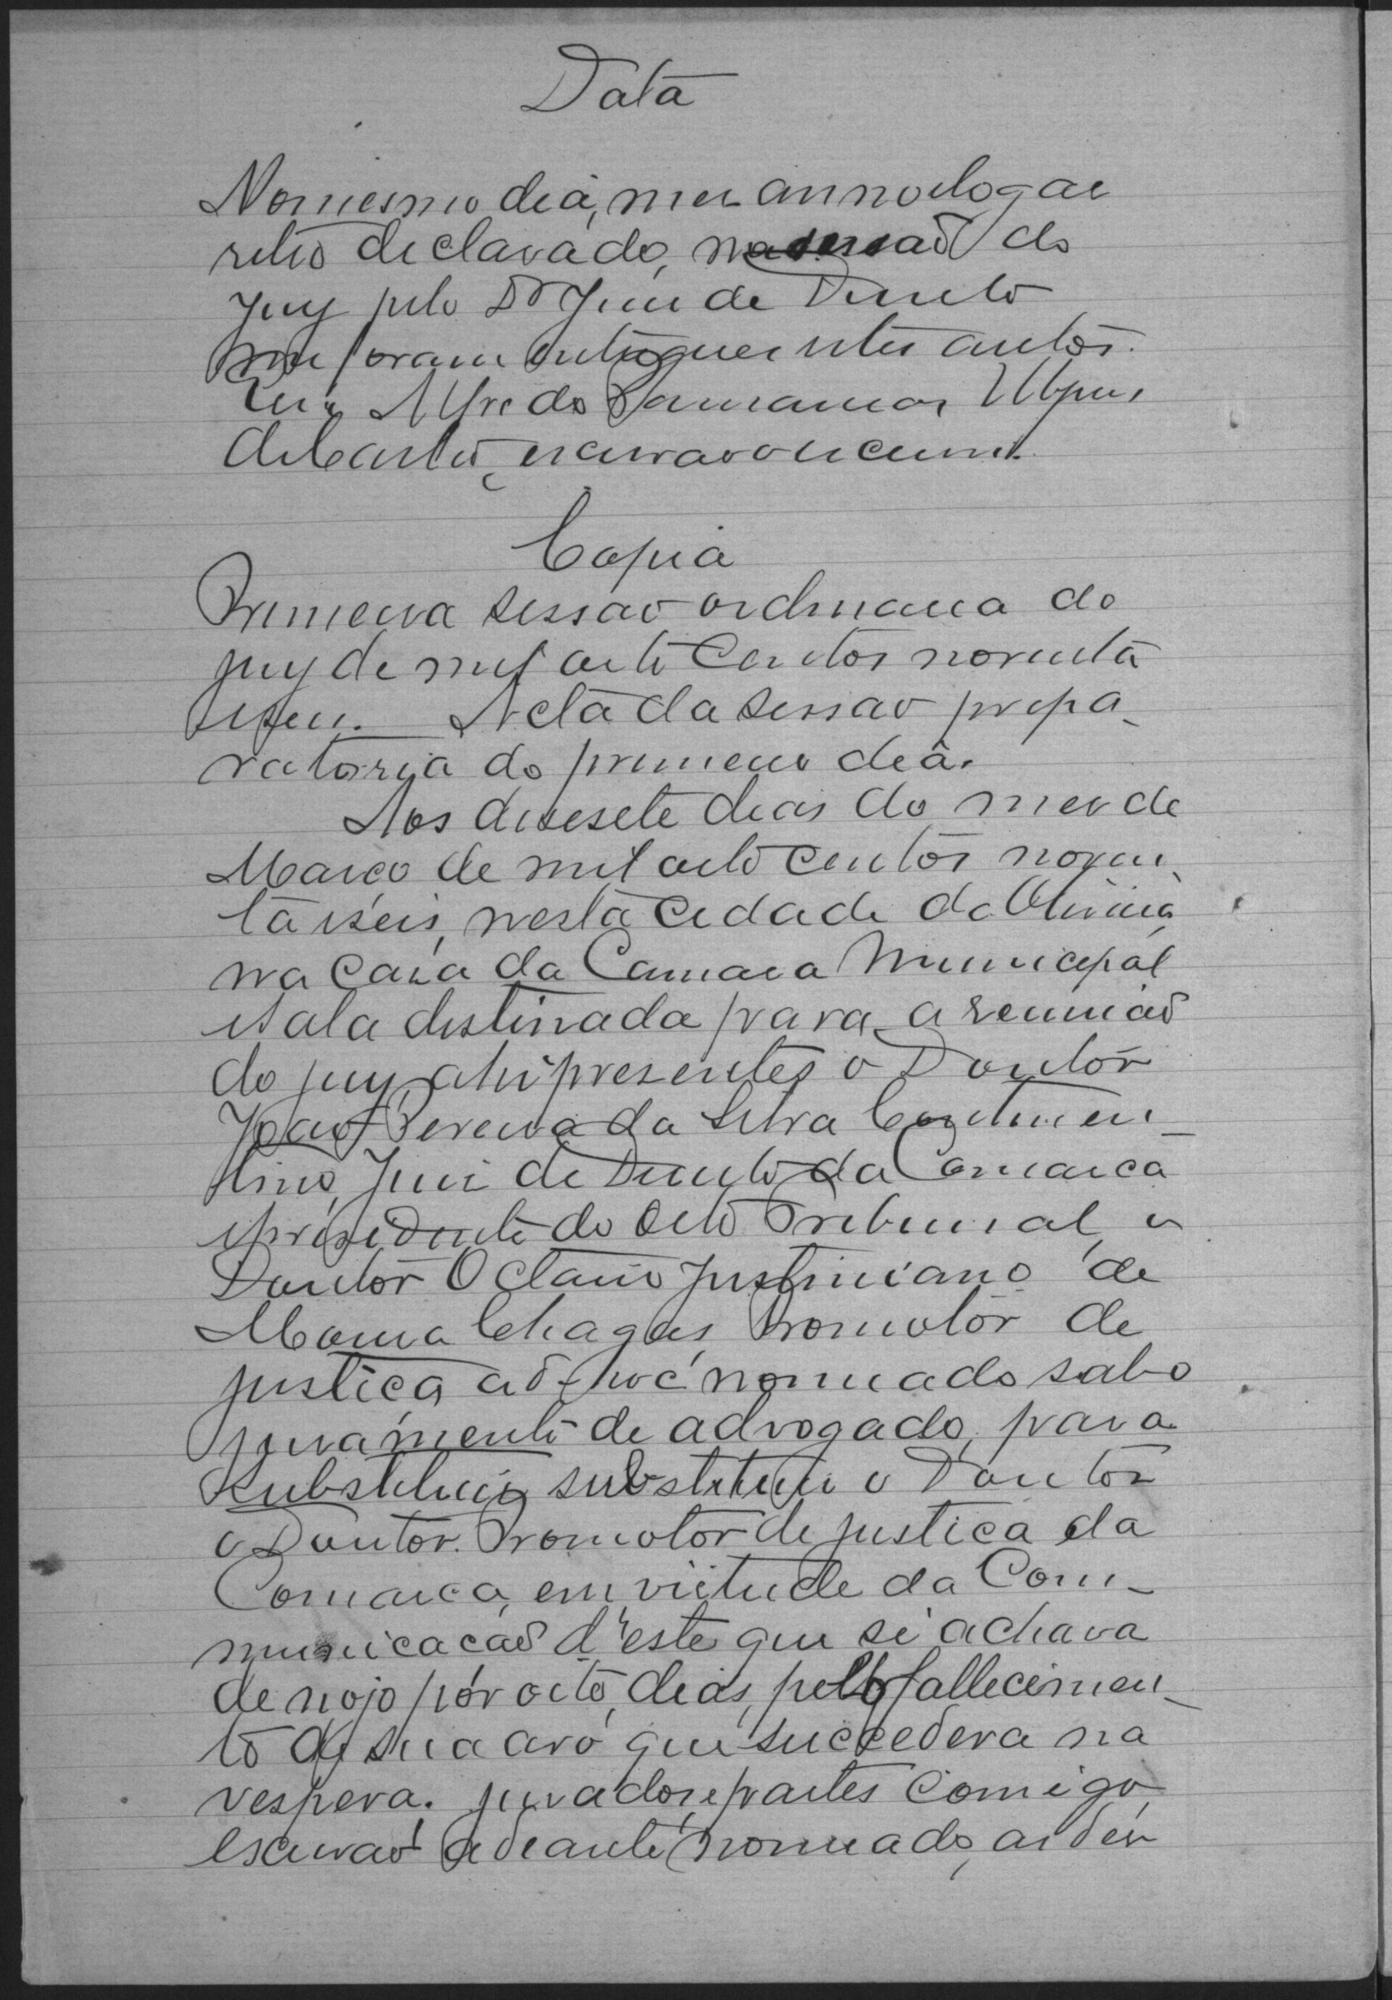 Data
No mesmo dia, mez anno e logar
retro declarado, na sessaõ do
jury pelo Dr Juiz de Direito
me foram entregues estes autos.
Eu, Alfredo
de Castro, escrivaõ o escrevi.
Copia
Primeira sessaõ ordinaria do
jury de mil oito centos noventa
e seis. Acta da sessaõ prepa-
ratoria do primeiro dia.
Aos desesete dias do mez de
Março de mil oito centos noven-
ta e seis, nesta cidade da Oliveira
na casa da Camara Municipal
e sala destinada para a reuniaõ
do jury, ahi presentes o Doutor
Joaõ Pereira da Silva Continen-
tino, Juiz de Direito da Comarca
e presidente do dito Tribunal, o
Doutor Octavio Justiniano de
Moura Chagas, Promotor de
justiça ad-hoc nomeado sob o
juramento de advogado, para
substituir substituir o Doutor
o Doutor Promotor de justiça da
Comarca, em virtude da com-
municacaõ d'este que se achava
de nojo por oito dias, pelo fallecimen-
to de sua avó que succedera na
vespera. jurados, e partes comigo
escrivaõ adeante nomeado, as dez